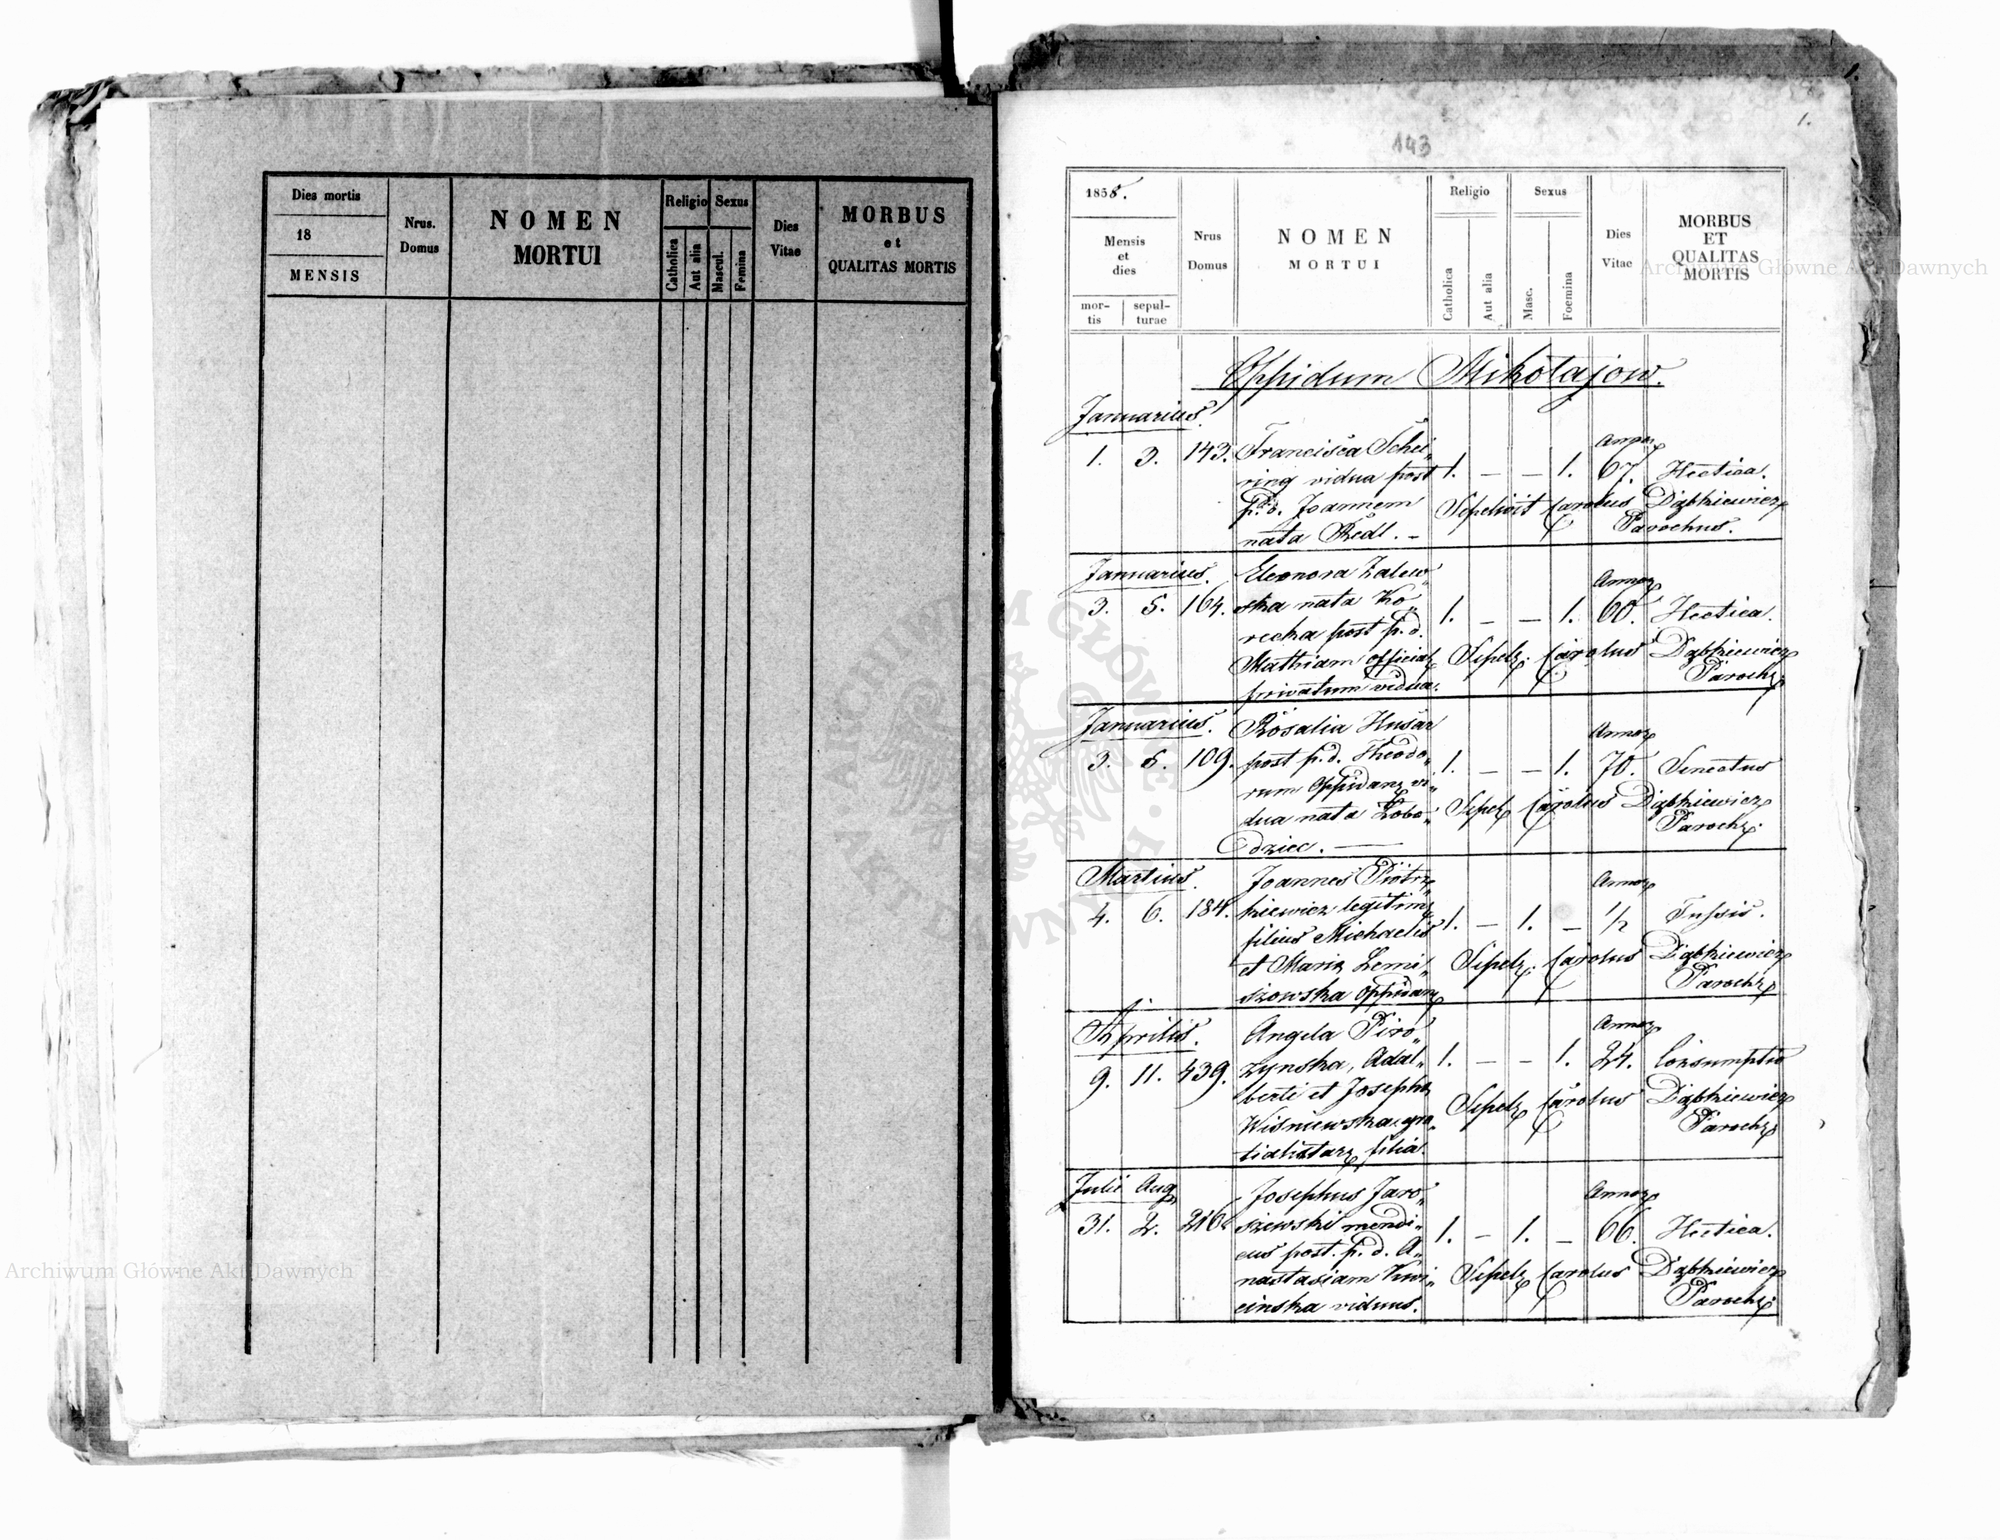 Dies mortis
18
MENSIS
Nrus.
Domus
NOMEN
MORTUI
Religio
Catholica
Aut alia
Sexus
Mascul.
Femina
Dies
Vitae
MORBUS
et
QUALITAS MORTIS
1.
1.
143
1858.
Mensis
et
dies
mor-
tis
sepul-
turae
Nrus
Domus
NOMEN
MORTUI
Religio
Catholica
Aut alia
Sexus
Masc.
Foemina
Dies
Vitae
MORBUS
ET
QUALITAS
MORTIS
Oppidum Mikołajow.
Januarius.
1. 3. 143. Francisca Schei„
ring vidua post
p. d. Joannem
nata Redl. –
1. – – 1.
67. Hectica.
Sepelivit Carolus Dąbkiewicz
Parochus.
Januarius.
3. 5. 164. Eleonora Zalew„
ska nata Ko„
recka post p. d.
Mathiam official
privatum vidua.
1. – – 1.
60. Hectica.
Sepel. Carolus Dąbkiewicz
Paroch.
Januarius.
3. 5. 109. Rosalia Husar
post p. d. Theodo„
rum Oppidan vi„
dua nata Łobo„
dziec. —
1. – – 1.
70. Senectus
Sepel Carolus Dąbkiewicz
Paroch.
Martius.
4. 6. 184. Joannes Piotr„
kiewicz legitim
filius Michaelis
et Maria Lemi„
szowska Oppidan
1. – 1. –
1/2 Tussis.
Sepel. Carolus Dąbkiewicz
Paroch
Aprilis.
9. 11. 439. Angela Piro„
zynska, Adal„
berti et Josepha
Wisniewska
filia.
1. – – 1.
24. Consumptio
Sepel Carolus Dąbkiewicz
Paroch
Julii Aug
31. 2. 216. Josephus Jaro„
szewski mendi„
cus post. p. d. A„
nastasiam Kwi„
cinska viduus.
1. – 1. –
66. Hectica.
Sepel Carolus Dąbkiewicz
Paroch.
ARCHIWUM GŁÓWNE AKT DAWNYCH
Archiwum Główne Akt Dawnych
Archiwum Główne Akt Dawnych